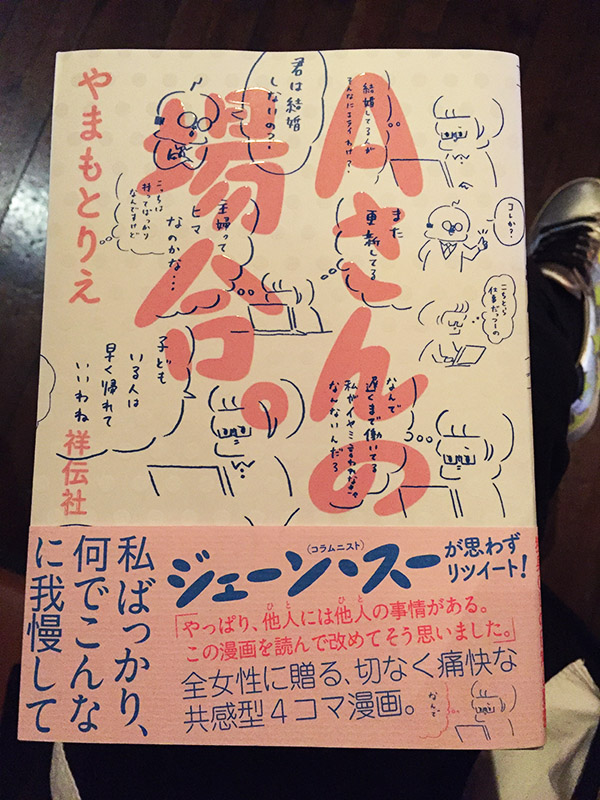 Aさんの
場合。
やまもとりえ
祥伝社
結婚してる人が
そんなにエライわけ？
君は結婚
しないの？
また
更新してる
コレか？
こっちは
待ってばっかり
なんですけど
主婦って
ヒマ
なのかな…
こちとら
仕事だっつーの
子ども
いる人は
早く帰れて
いいわね
なんで
遅くまで働いてる
私がイヤミ言われなきゃ
なんないんだろ
私ばっかり、
何でこんな
に我慢して
（コラムニスト）
ジェーン・スーが思わず
リツイート！
「やっぱり、他人には他人の事情がある。
ひと ひと
この漫画を読んで改めてそう思いました。」
全女性に贈る、切なく痛快な
共感型4コマ漫画。
なんで